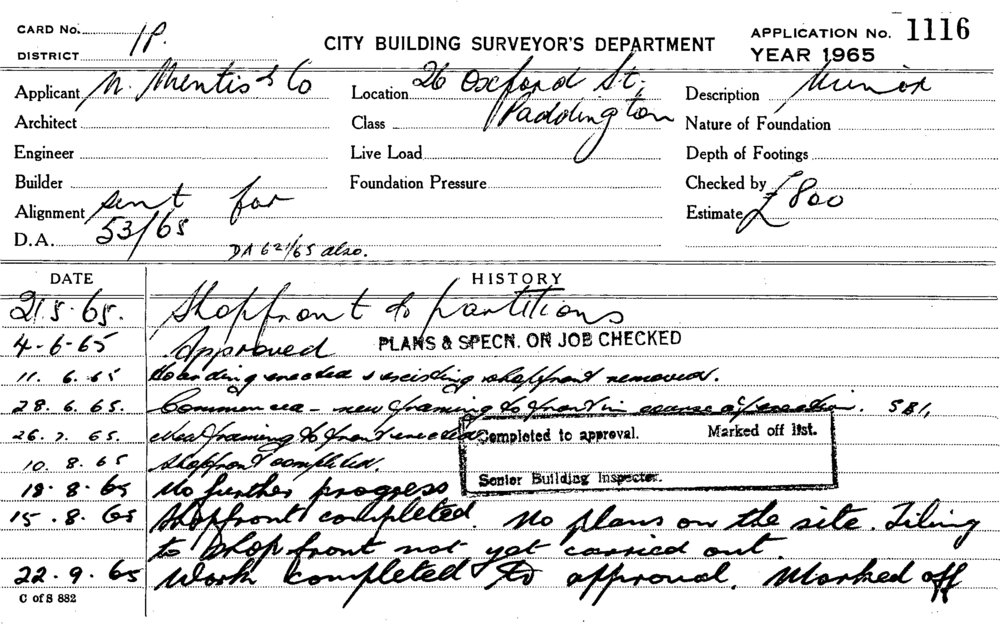 CARD No. 1P.
DISTRICT
CITY BUILDING SURVEYOR'S DEPARTMENT
APPLICATION No. 1116
YEAR 1965
Applicant N. Mentis & Co
Location 26 Oxford St, Paddington
Description Minor
Architect
Class
Nature of Foundation
Engineer
Live Load
Depth of Footings
Builder
Foundation Pressure
Checked by
Alignment sent for
Estimate £800
D.A. 53/65
DA 621/65 also.
DATE HISTORY
21.5.65. Shopfront & partitions
4-6-65 Approved PLANS & SPECN. ON JOB CHECKED
11. 6. 65 Hoarding erected & existing shopfront removed.
28. 6. 65. Commenced - new framing to front in course of erection. SBI,
26. 7. 65. New framing to front erected
Completed to approval. Marked off list.
10. 8. 65 Shopfront completed.
Senior Building Inspector.
18. 8. 65 No further progress
15. 8. 65 Shopfront completed. No plans on the site. Tiling
to shop front not yet carried out.
22. 9. 65 Work completed to approval. Marked off
C of S 882